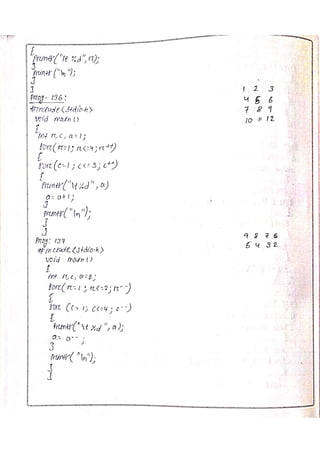 {
printf("\t %d", n);
}
printf("\n");
}
}
Prog- 136:
#include<stdio.h>
void main()
{
int r, c, a=1;
for(r=1; r<=4; r++)
{
for(c=1; c<=3; c++)
{
printf("\t %d", a)
a=a+1;
}
printf("\n");
}
}
1 2 3
4 5 6
7 8 9
10 11 12
Prog: 137
#include<stdio.h>
void main()
{
int r, c, a=9;
for(r=1; r<=2; r--)
{
for (c=1; c<=4; c--)
{
printf("\t %d", a);
a= a--;
}
printf("\n");
}
}
9 8 7 6
5 4 3 2